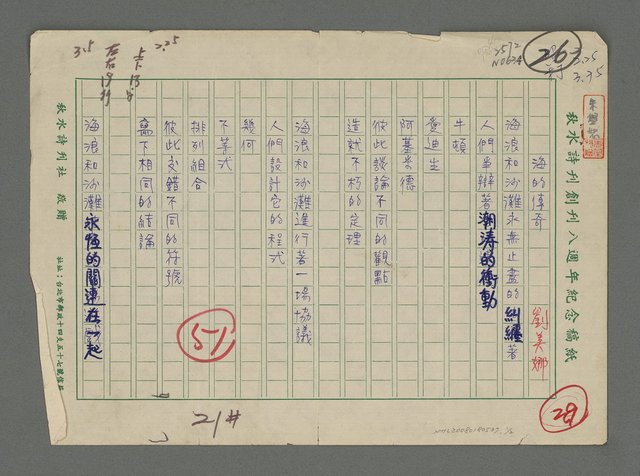 秋水詩刊創刊八週年紀念稿紙
海的傳奇
劉美娜
海浪和沙灘永無止盡的糾纏著
人們爭辯著潮濤的衝動
牛頓
愛迪生
阿基米德
彼此談論不同的觀點
造就不朽的定理
海浪和沙灘進行著一場協議
人們設計它的程式
幾何
不等式
排列組合
彼此交錯不同的符號
寫下相同的結論
海浪和沙灘永恆的關連在一起
秋水詩刊社 敬贈
社址：台北市郵政十四支五十七號信箱
26
28
51
21#
3.5
2.25
3.25
3.75
左右19行
上下13字